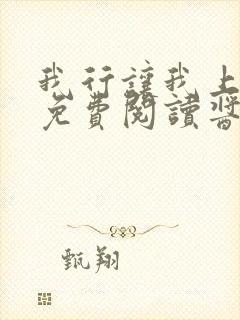 我行讓我上
免費閱讀醬
甄翔